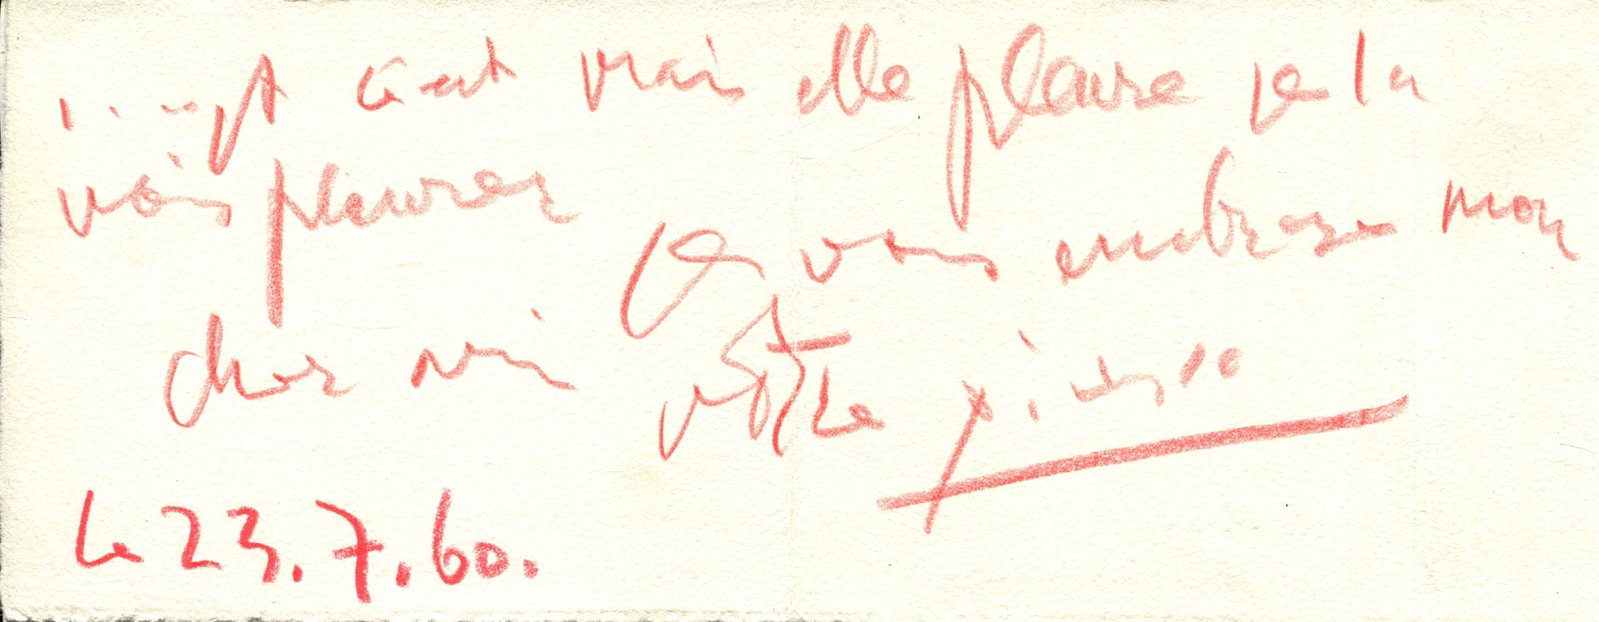 vingt c'est vrai elle pleure je la
vois pleurer Je vous embrasse mon
cher ami vôtre picasso
Le 23.7.60.